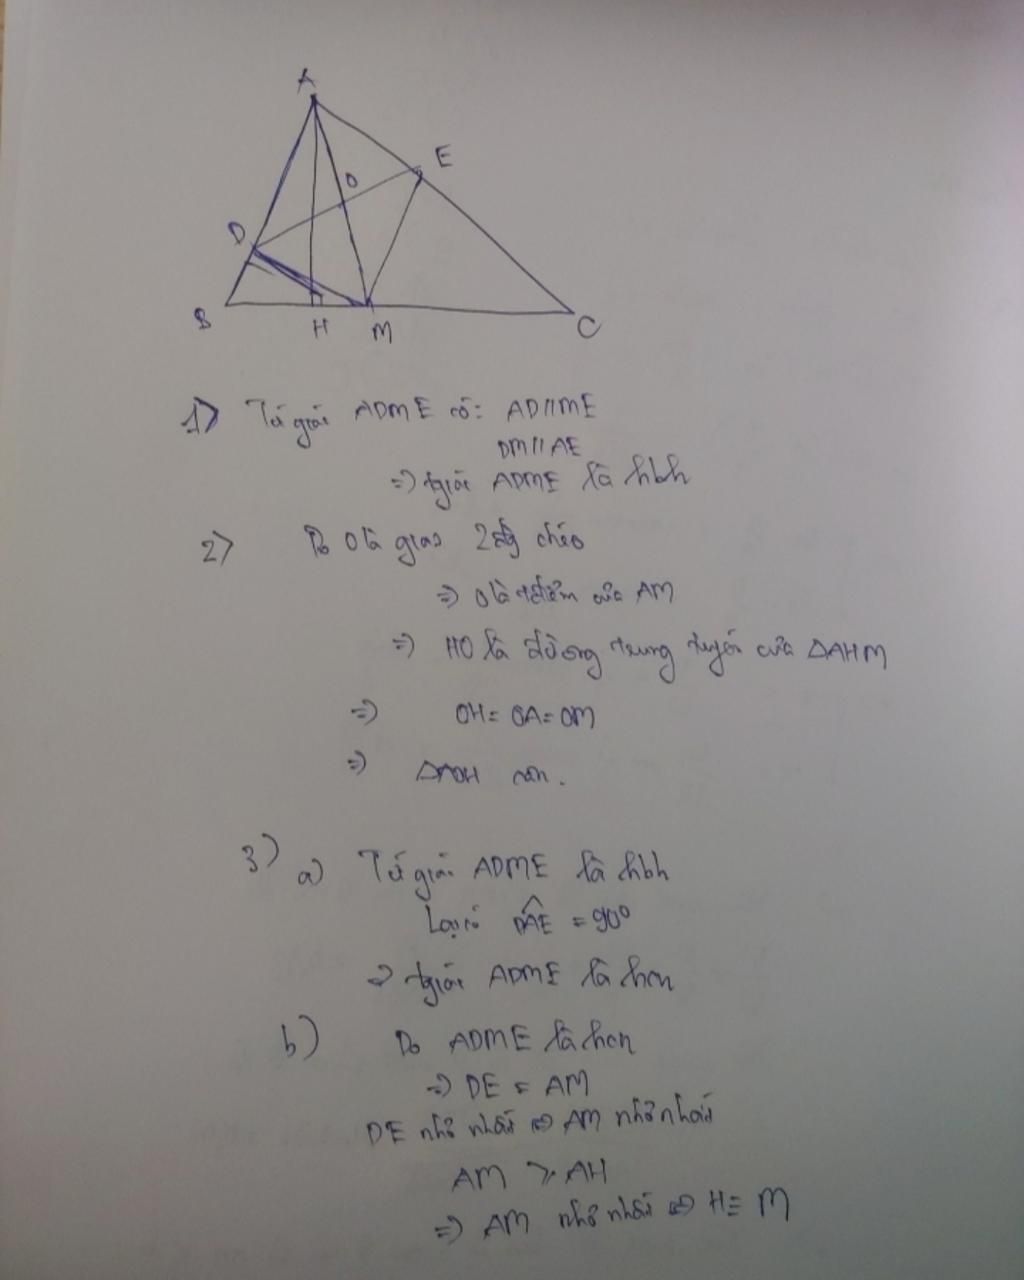 A
E
O
D
B
H
M
C
1) Tứ giác ADME có: AD//ME
DM//AE
=> tgiác ADME là hbh
2) Do O là giao 2 đg chéo
=> O là tđiểm của AM
=> HO là đường trung tuyến của ΔAHM
=> OH = OA = OM
=> ΔAOH cân.
3) a) Tứ giác ADME là hbh
Lại có DAE = 90°
=> tgiác ADME là hcn
b) Do ADME là hcn
=> DE = AM
DE nhỏ nhất <=> AM nhỏ nhất
AM ≥ AH
=> AM nhỏ nhất <=> H ≡ M